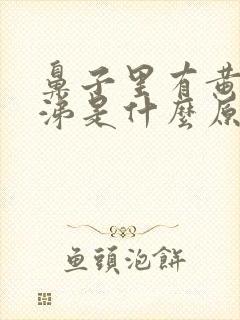 鼻子里有黄
涕是什麼原
鱼頭泡餅